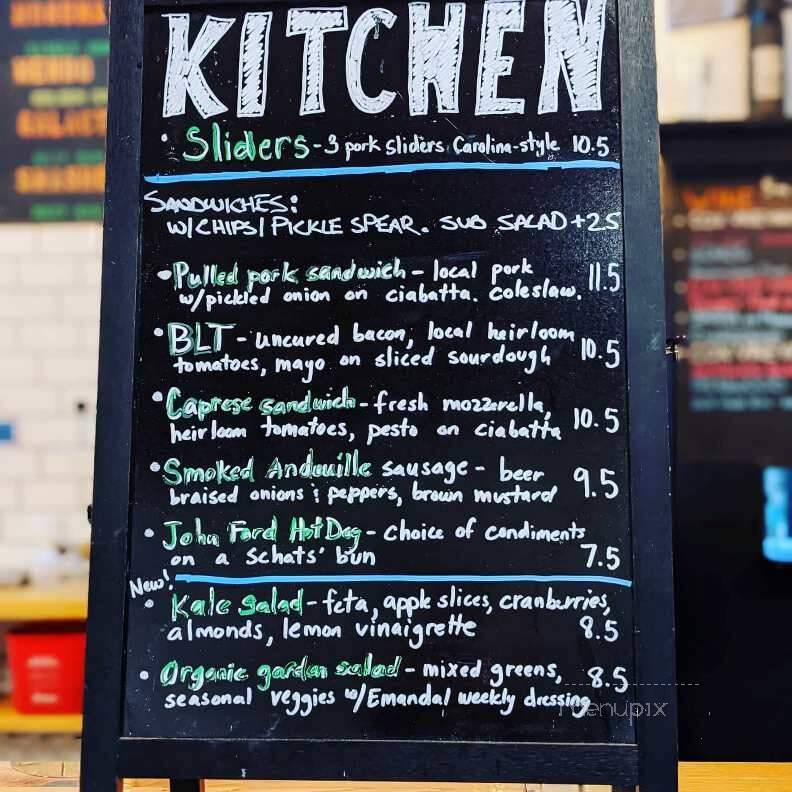 KITCHEN
• Sliders - 3 pork sliders Carolina-style 10.5
SANDWICHES:
W/CHIPS/PICKLE SPEAR. SUB SALAD +25
• Pulled pork sandwich - local pork
w/pickled onion on ciabatta. coleslaw. 11.5
• BLT - uncured bacon, local heirloom
tomatoes, mayo on sliced sourdough 10.5
• Caprese sandwich - fresh mozzarella,
heirloom tomatoes, pesto on ciabatta 10.5
• Smoked Andouille sausage - beer
braised onions & peppers, brown mustard 9.5
• John Ford Hot Dog - choice of condiments
on a Schats' bun 7.5
New!
• Kale Salad - feta, apple slices, cranberries,
almonds, lemon vinaigrette 8.5
• Organic garden salad - mixed greens, 8.5
seasonal veggies w/Emandal weekly dressing
menupix
WINE